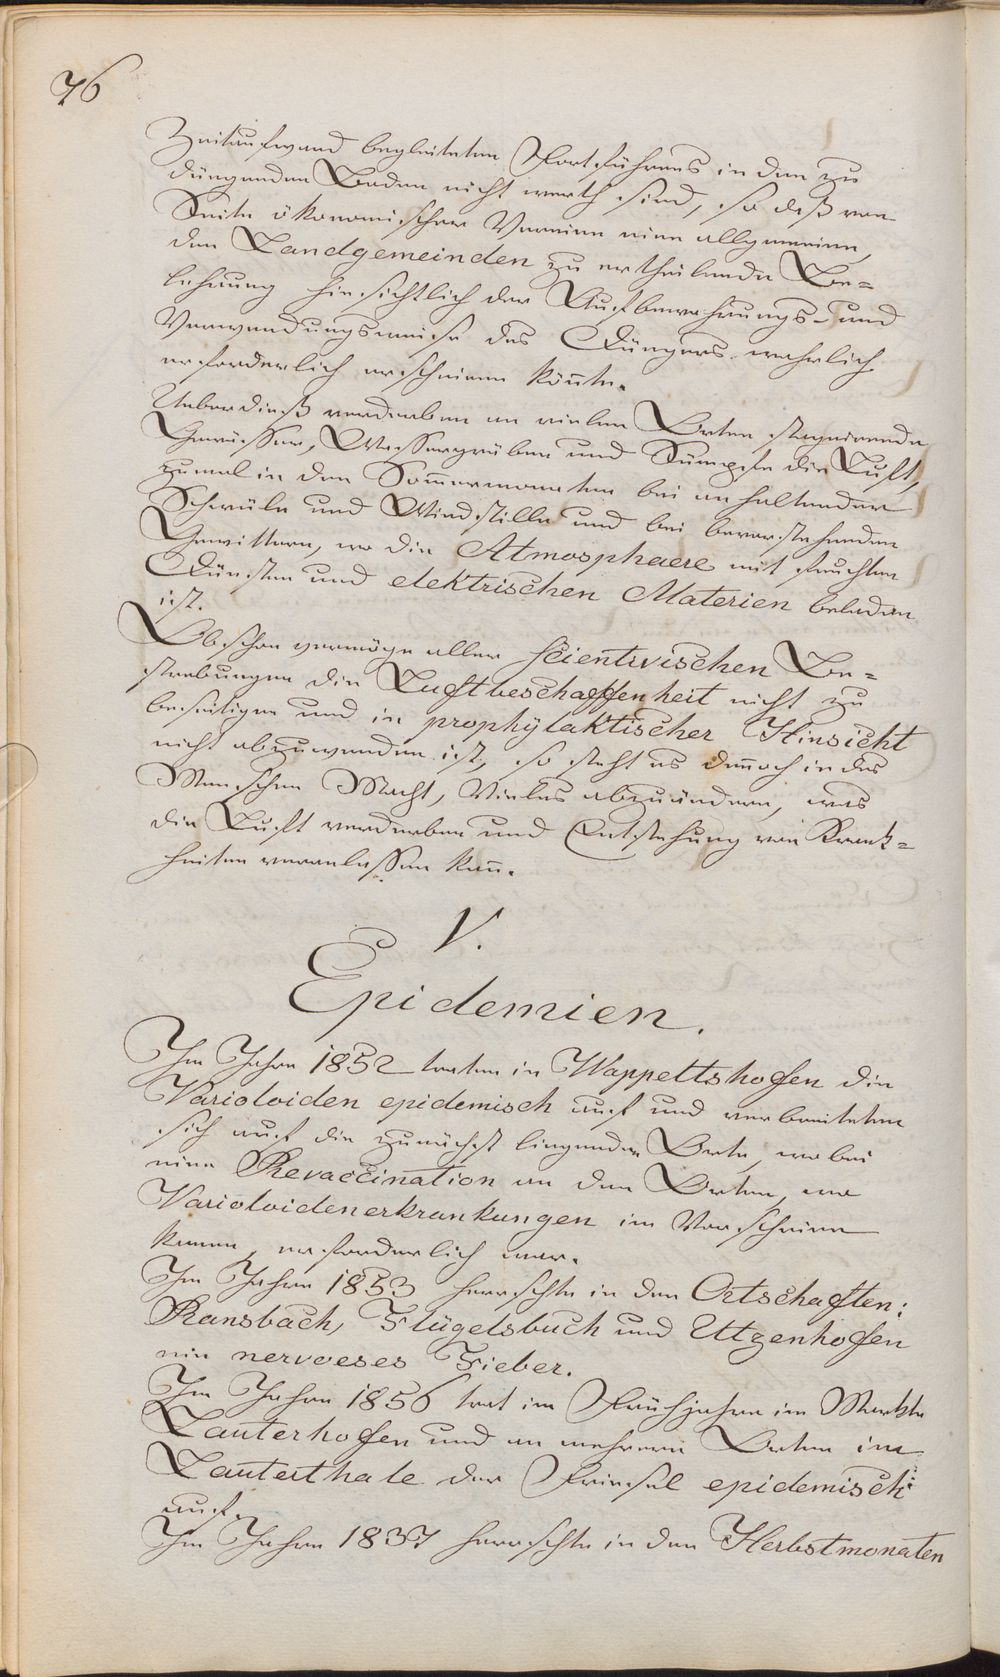 76
Zeitaufwand begleiteten Fortführens in den zu
düngenden Boden nicht werth sind, so daß von
Seite ökonomischer Vereine eine allgemeine,
den Landgemeinden zu ertheilende Be=
lehrung hinsichtlich der Aufbewahrungs- und
Verwendungsweise des Düngers wahrlich
erforderlich erscheinen könnte.
Ueberdieß verderben an vielen Orten stagnirende
Gewässer, Wassergräben und Sümpfe die Luft,
zumal in den Sommermonaten bei anhaltender
Schwüle und Windstille und bei bevorstehenden
Gewittern, wo die Atmosphaere mit feuchten
Dünsten und elektrischen Materien beladen
ist.
Obschon vermöge aller scientivischen Be=
strebungen die Luftbeschaffenheit nicht zu
beseitigen und in prophÿlaktischer Hinsicht
nicht abzuwenden ist, so steht es dennoch in des
Menschen Macht, Vieles abzuändern, was
die Luft verderben und Entstehung von Krank=
heiten veranlassen kann.
V.
Epidemien.
Im Jahre 1852 traten in Wappeltshofen die
Varioloiden epidemisch auf und verbreiteten
sich auf die zunächst liegenden Orte, wobei
eine Revaccination an den Orten, wo
Varioloidenerkrankungen im Vorscheine
kamen, erforderlich war.
Im Jahre 1853 herrschte in den Ortschaften:
Ransbach, Flügelsbuch und Utzenhofen
ein nervoeses Fieber.
Im Jahre 1856 trat im Frühjahre im Markte
Lauterhofen und an mehrern Orten im
Lauterthale der Friesel epidemisch
auf.
Im Jahre 1857 herrschte in den Herbstmonaten